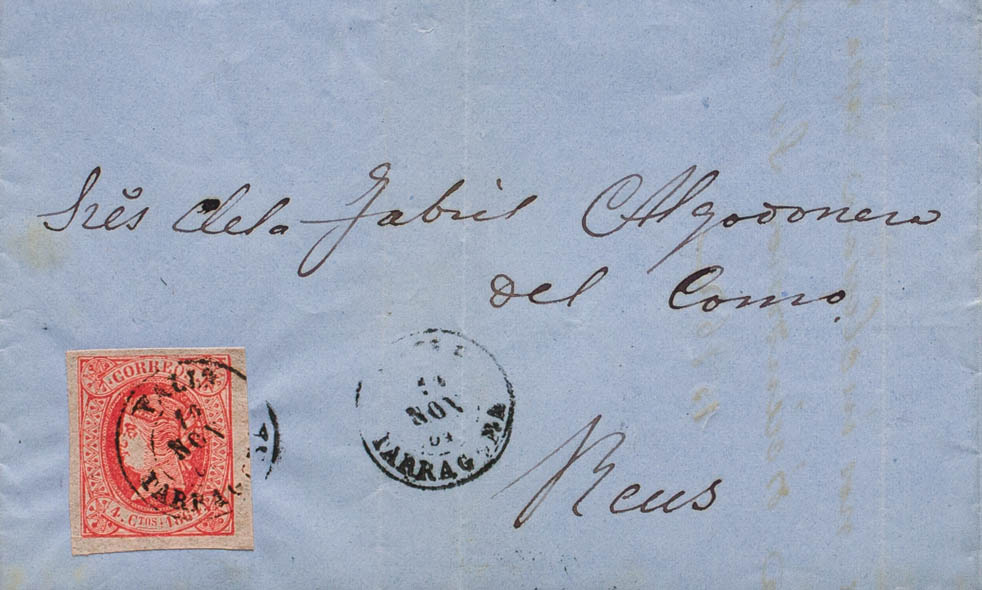 Srẽs dela Fabril Algodonera
del Como
Reus
CORREOS
4. CTOS. 186
VALLS
NOV
TARRAG
NOV
TARRAGONA